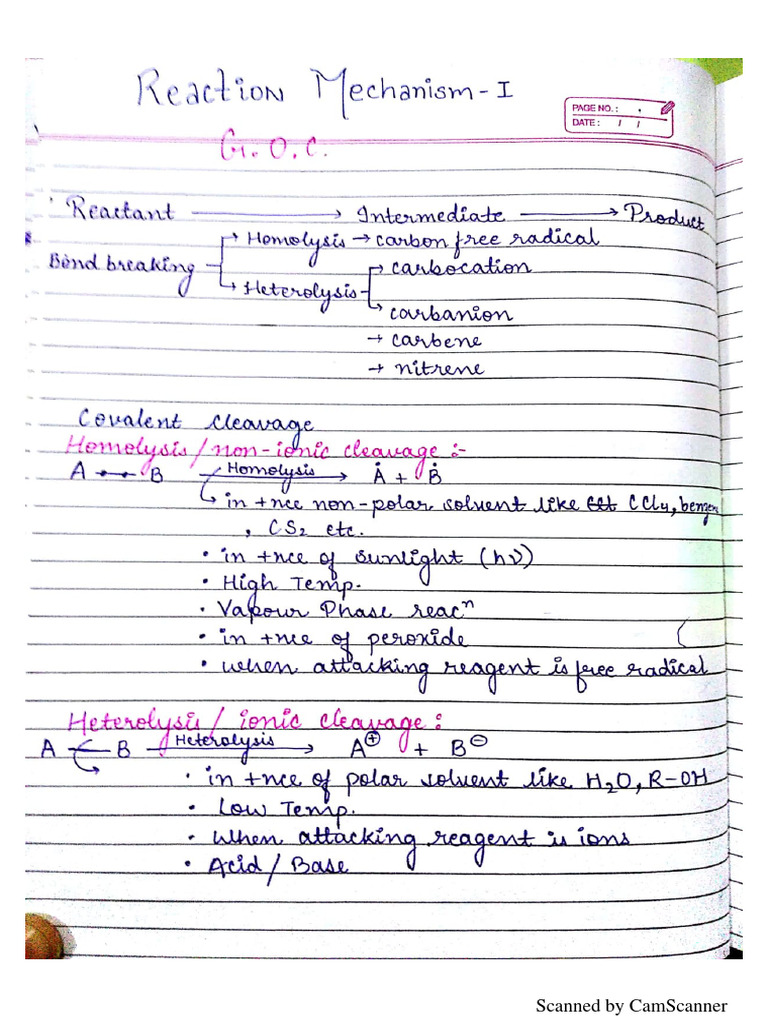 Reaction Mechanism - I
PAGE NO. :
DATE : / /
G.O.C.
Reactant → Intermediate → Product
Bond breaking → Homolysis → carbon free radical
→ Heterolysis → carbocation
→ carbanion
→ carbene
→ nitrene
Covalent cleavage
Homolysis / non-ionic cleavage :-
A •—• B Homolysis → Ȧ + Ḃ
↳ in +nce non-polar solvent like CCl4,
, CS2 etc.
• in +nce of sunlight (hν)
• High Temp.
• Vapour Phase reacⁿ
• in +nce of peroxide
• when attacking reagent is free radical
Heterolysis / ionic cleavage :
A — B Heterolysis → A⊕ + B⊖
• in +nce of polar solvent like H2O, R-OH
• Low Temp.
• when attacking reagent is ions
• Acid / Base
Scanned by CamScanner